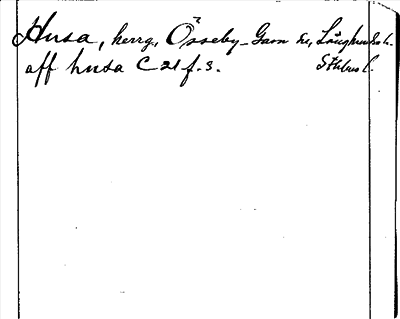 Husa, herrg, Össeby-Garn sn, Långhundra h.
aff husa C 21 f. 3. Sthlms l.